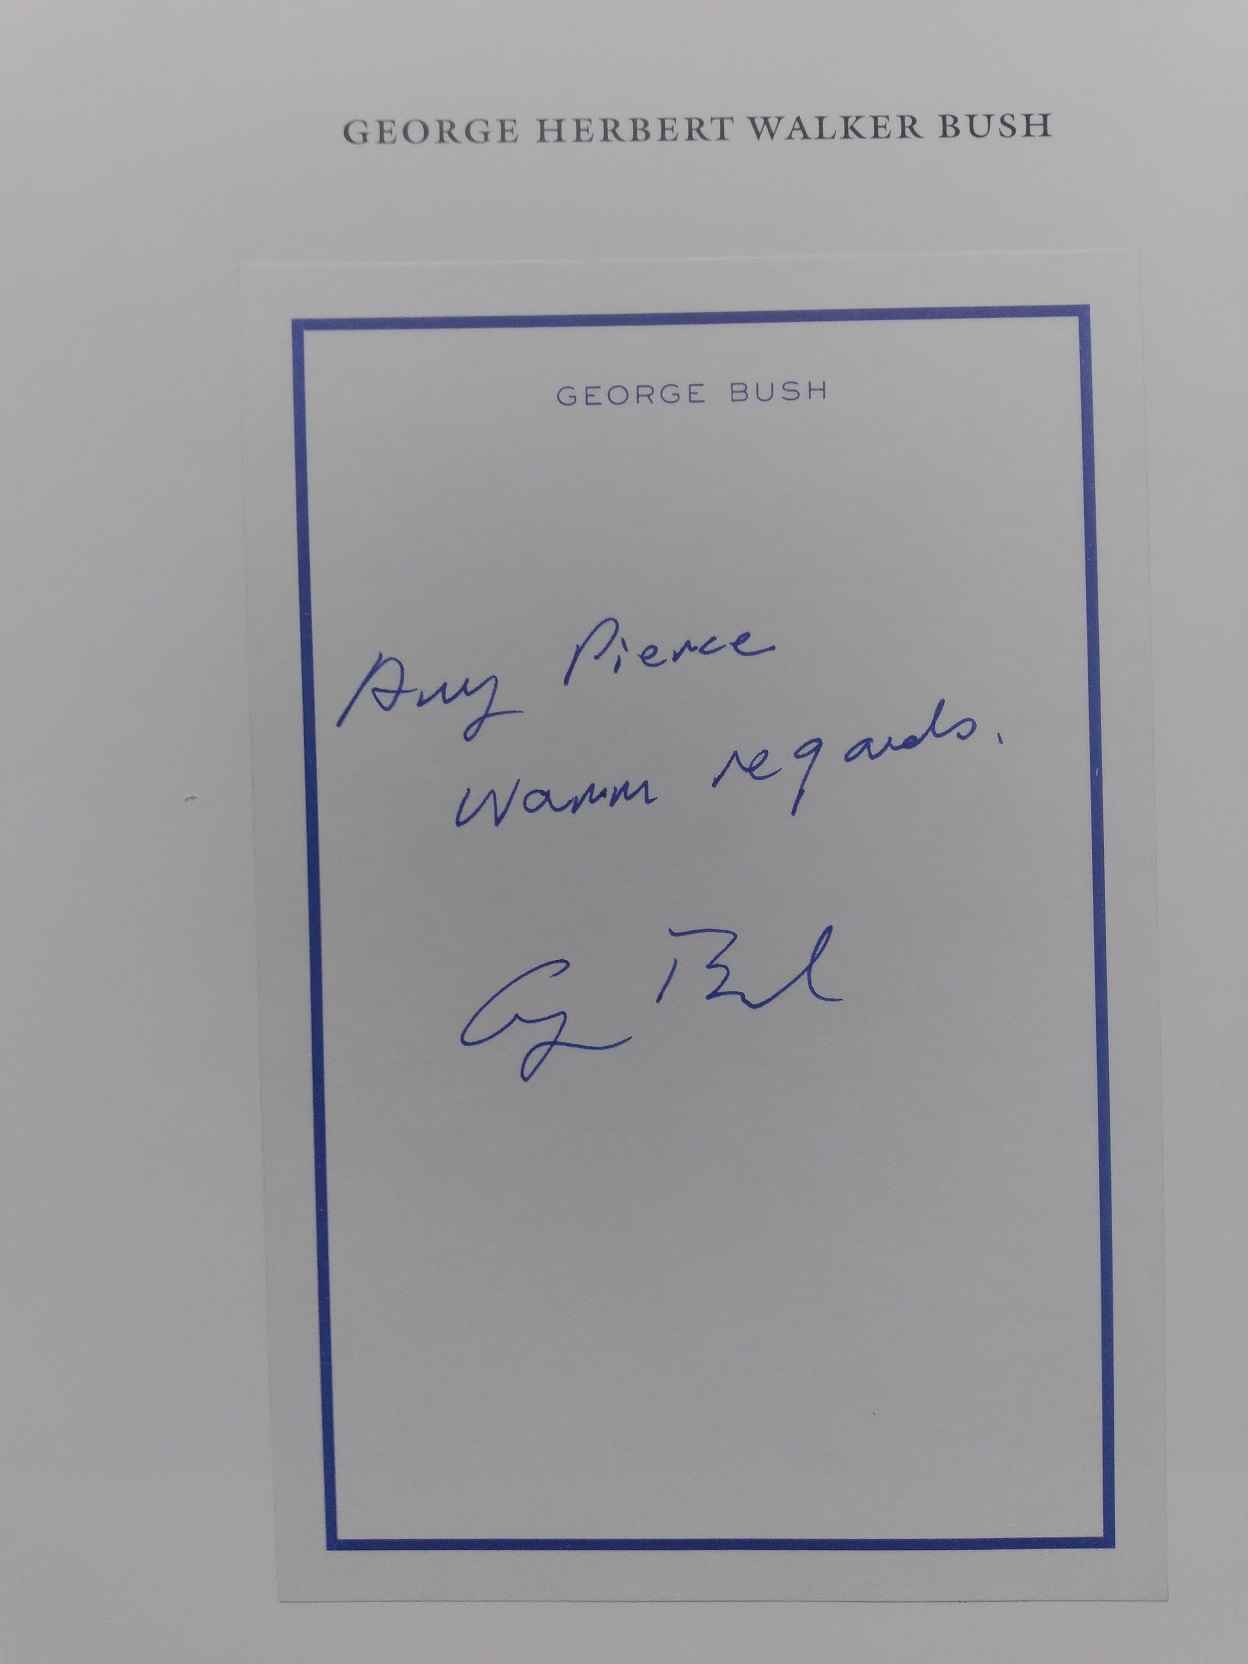 GEORGE HERBERT WALKER BUSH
GEORGE BUSH
Amy Pierce
Warm regards,
Gg Bush